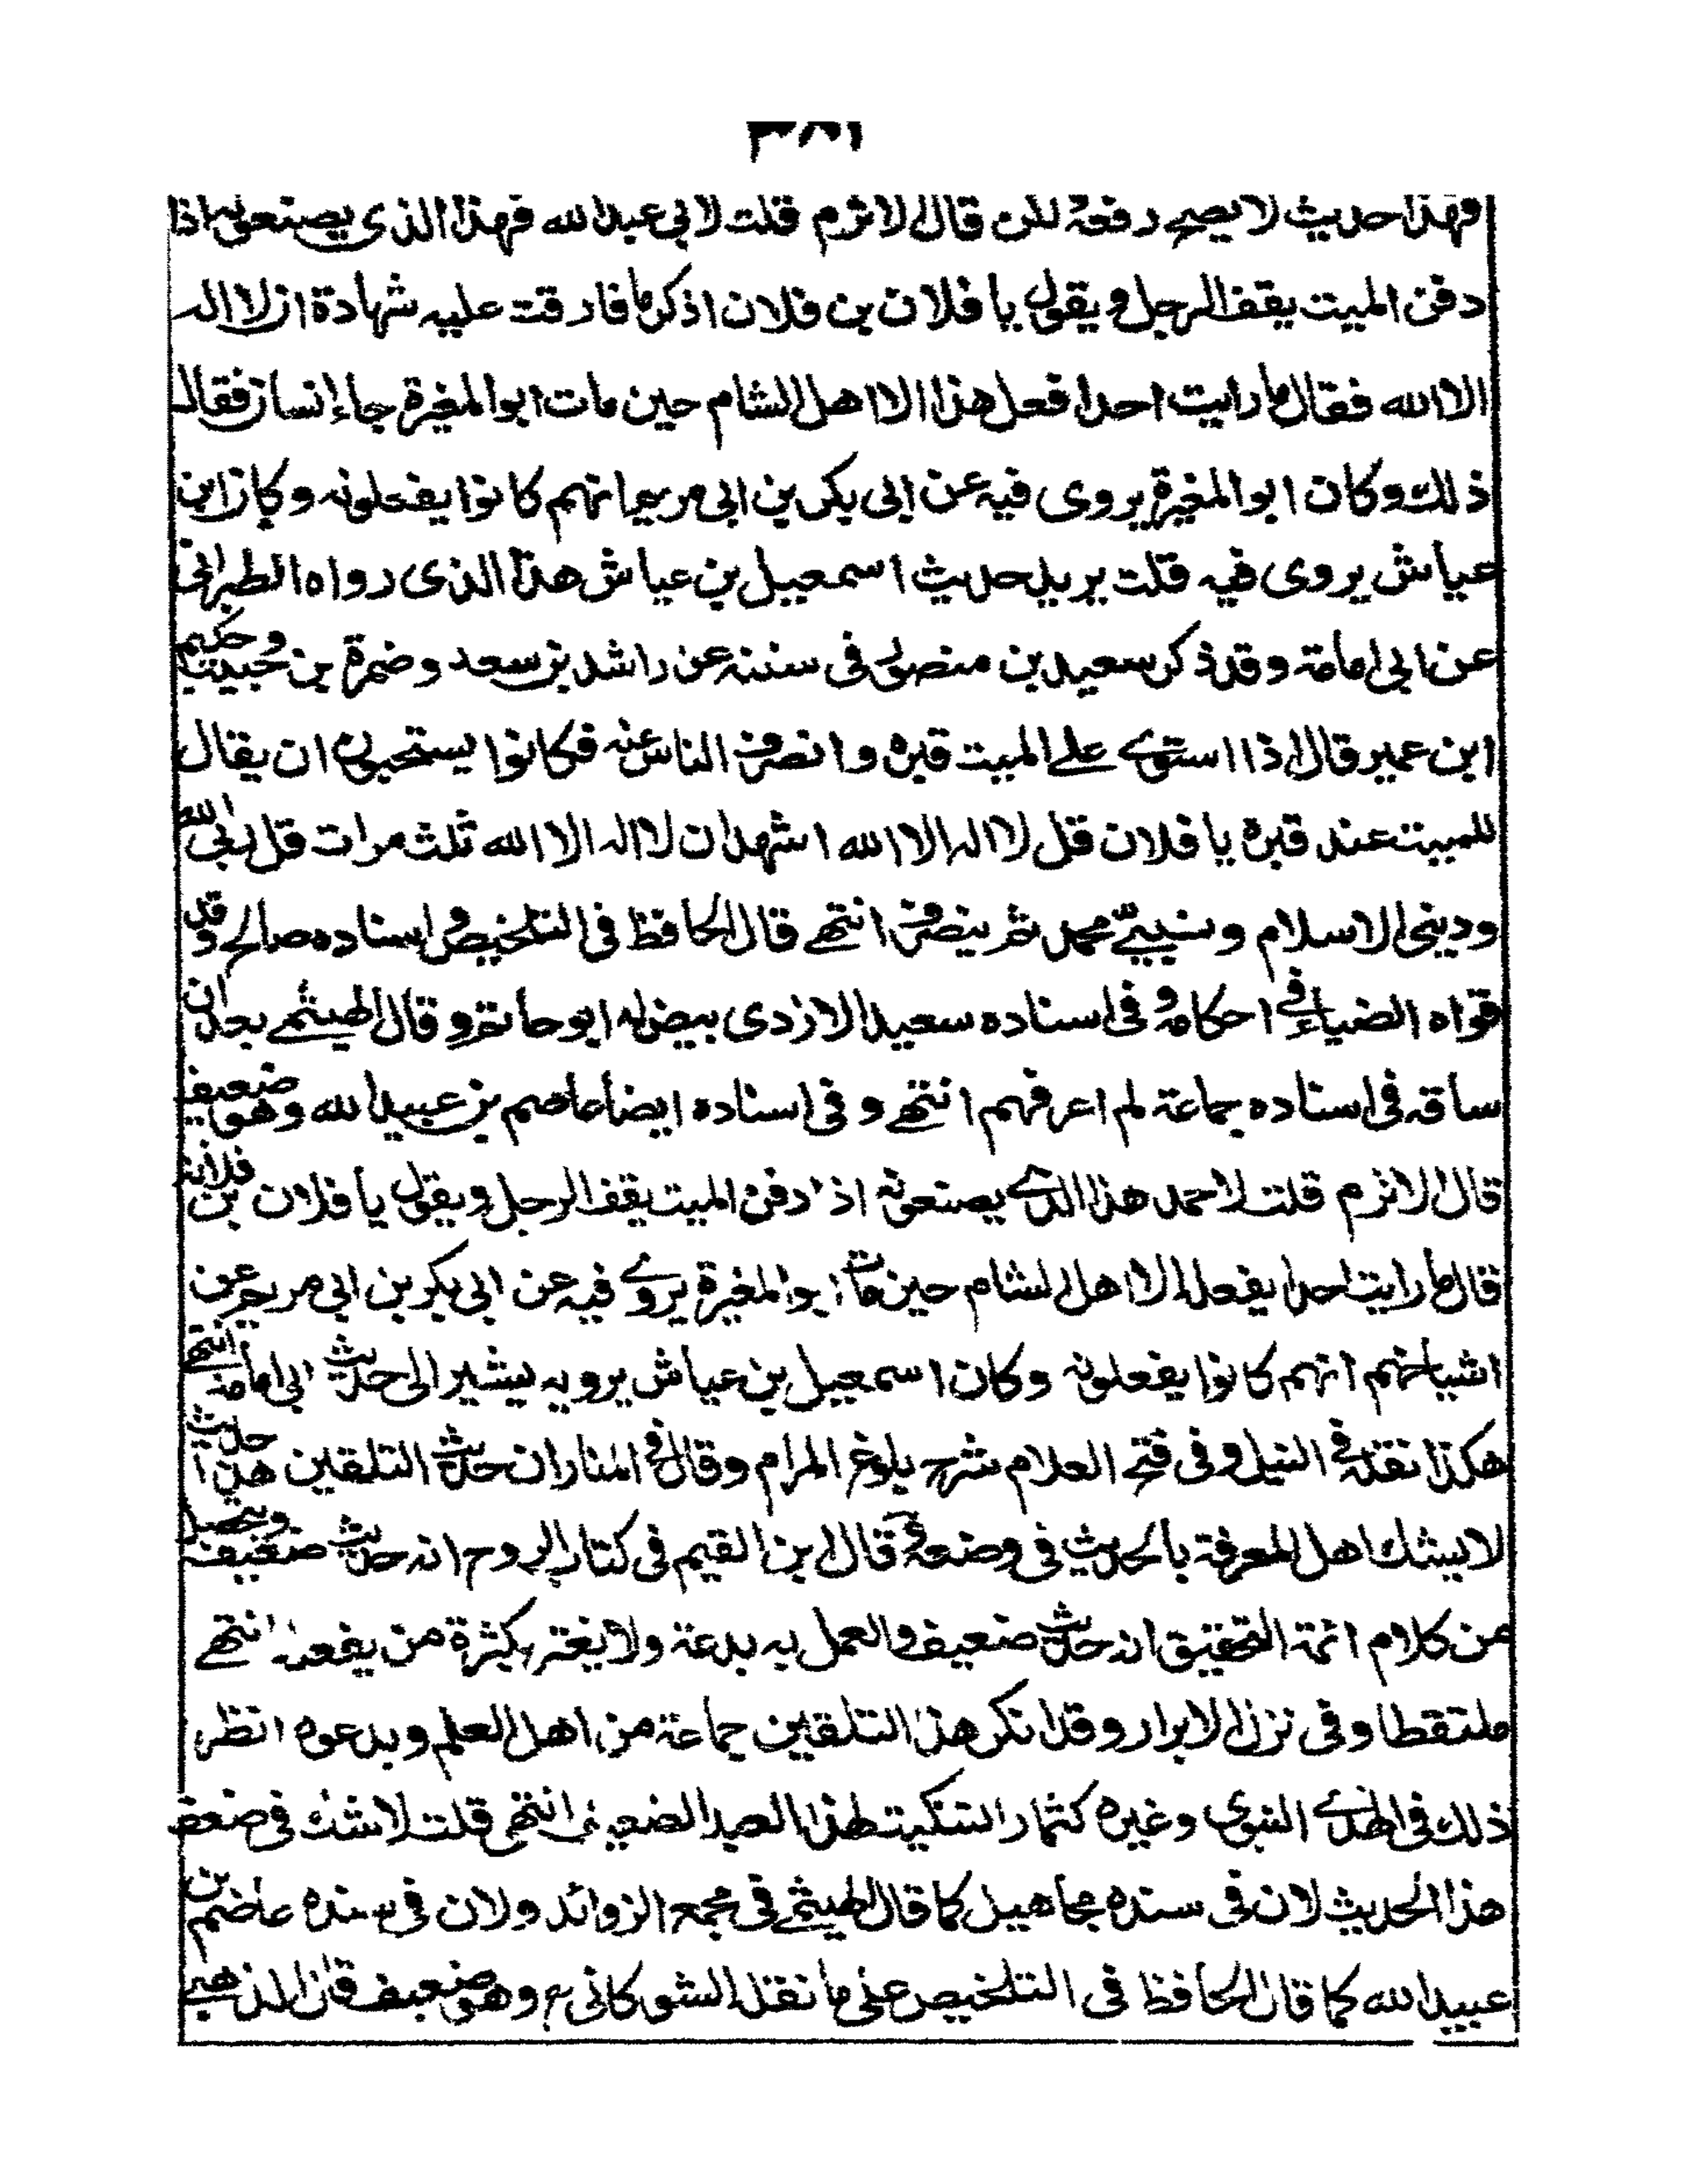 فهذا حديث لا يصح رفعه لكن قال الاثرم قلت لابى عبد الله فهذا الذى يصنعونه اذا
دفن الميت يقف الرجل ويقول يا فلان بن فلان اذكر ما فارقت عليه شهادة ان لا اله
الا الله فقال ما رايت احدا فعل هذا الا اهل الشام حين مات ابو المغيرة جاء انسان فقال
ذلك وكان ابو المغيرة يروى فيه عن ابى بكر بن ابى مريم انهم كانوا يفعلونه وكان ابن
عياش يروى فيه قلت يريد حديث اسمعيل بن عياش هذا الذى رواه الطبرانى
عن ابى امامة وقد ذكر سعيد بن منصور فى سننه عن راشد بن سعد وضمرة بن حبيب وحكيم
ابن عمير قال اذا استوى على الميت قبره وانصرف الناس عنه فكانوا يستحبون ان يقال
للميت عند قبره يا فلان قل لا اله الا الله اشهد ان لا اله الا الله ثلث مرات قل ربى الله
ودينى الاسلام ونبيى محمد ثم ينصرف انتهى قال الحافظ فى التلخيص واسناده صالح وقد
قواه الضياء فى احكامه وفى اسناده سعيد الازدى بيض له ابو حاتم وقال الهيثمى بعد ان
ساقه فى اسناده جماعة لم اعرفهم انتهى وفى اسناده ايضا عاصم بن عبيد الله وهو ضعيف
قال الاثرم قلت لاحمد هذا الذى يصنعونه اذا دفن الميت يقف الرجل ويقول يا فلان بن فلانة
قال ما رايت احدا يفعله الا اهل الشام حين مات ابو المغيرة يروى فيه عن ابى بكر بن ابى مريم عن
اشياخهم انهم كانوا يفعلونه وكان اسمعيل بن عياش يرويه يشير الى حديث ابى امامة انتهى
هكذا نقله فى النيل وفى فتح العلام شرح بلوغ المرام وقال فى المنار ان حديث التلقين هذا حديث
لا يشك اهل المعرفة بالحديث فى وضعه وقال ابن القيم فى كتاب الروح انه حديث ضعيف ويتحصل
من كلام ائمة التحقيق انه حديث ضعيف والعمل به بدعة ولا يغتر بكثرة من يفعله انتهى
ملتقطا وفى نزل الابرار وقد انكر هذا التلقين جماعة من اهل العلم وبدعوه انظر
ذلك فى الهدى النبوى وغيره كثمار التنكيت لهذا العبد الضعيف انتهى قلت لا شك فى ضعف
هذا الحديث لان فى سنده مجاهيل كما قال الهيثمى فى مجمع الزوائد ولان فى سنده عاصم بن
عبيد الله كما قال الحافظ فى التلخيص على ما نقله الشوكانى وهو ضعيف قال الذهبى